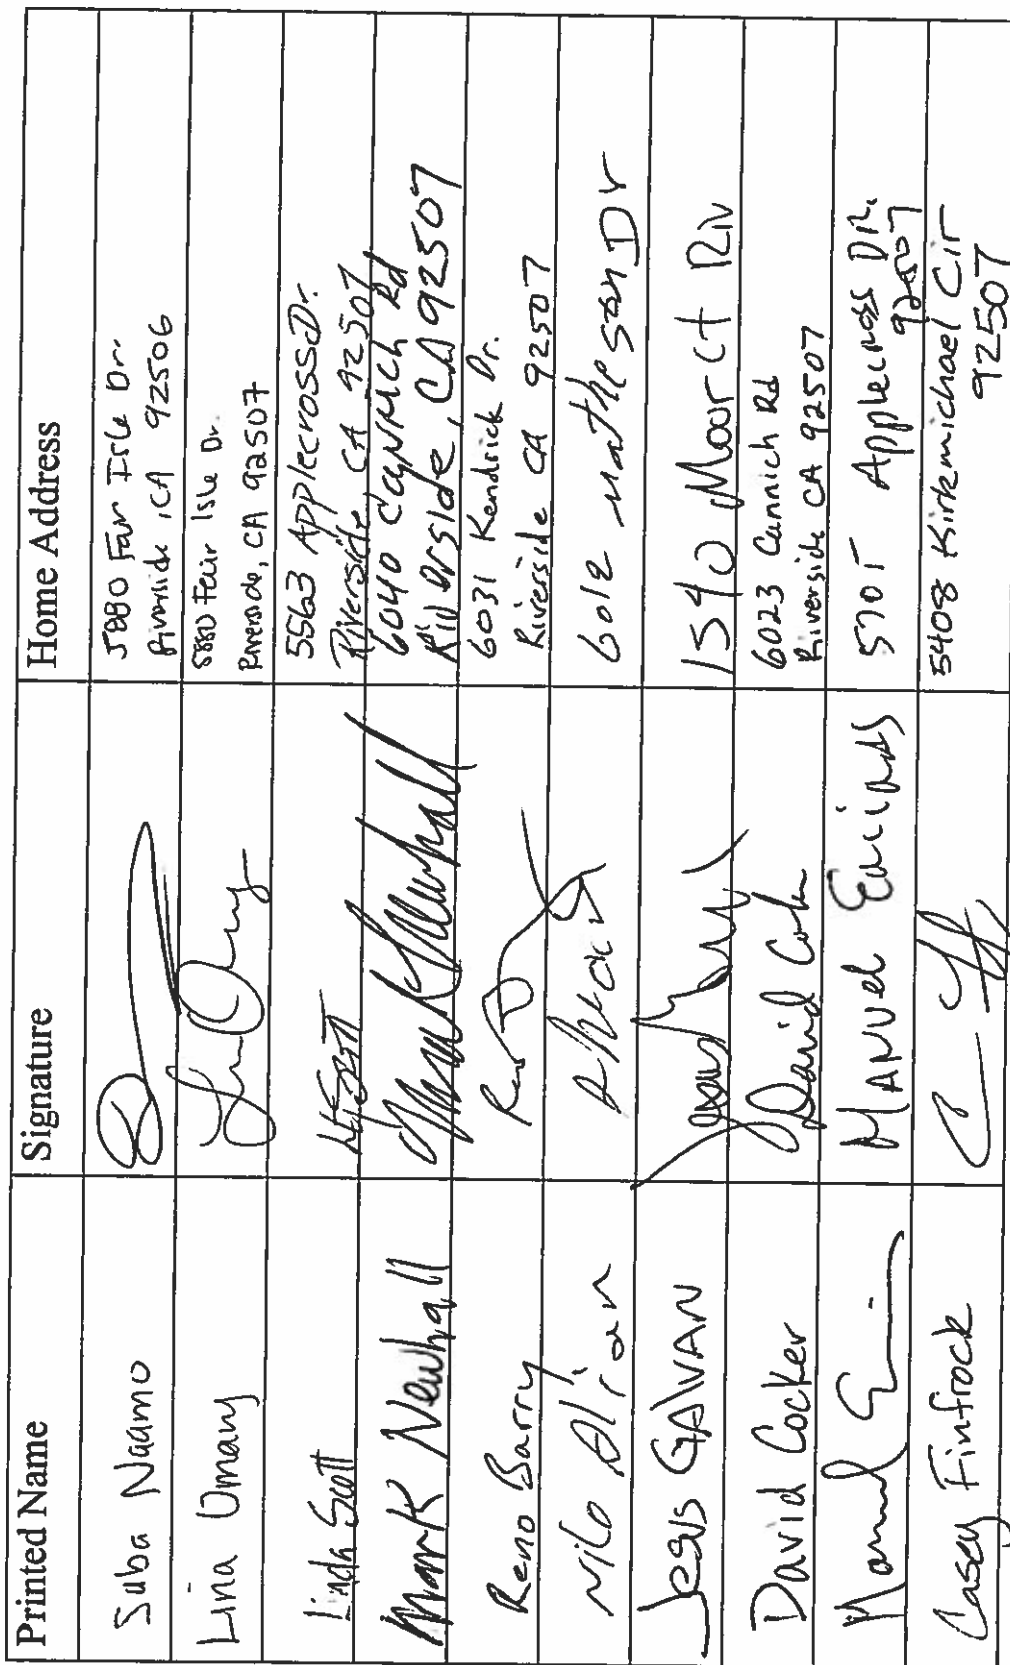 Printed Name Signature Home Address
Suba Naamo 5880 Fair Isle Dr.
Riverside, CA 92506
Lina Umany 5880 Fair Isle Dr.
Riverside, CA 92507
Linda Scott 5563 Applecross Dr.
Riverside, CA 92507
Mark Newhall Mark Newhall 6040 Cannich Rd
Riverside, CA 92507
Reno Barry 6031 Kendrick Dr.
Riverside CA 9250 7
Nilo 6012 Matheson Dr
Jesus GALVAN 1590 Moor Ct Riv
David Cocker David 6023 Cannich Rd
Riverside CA 92507
MANUel 5701 Applecross DR.
92507
Casey Finfrock 5408 Kirkmichael Cir
92507